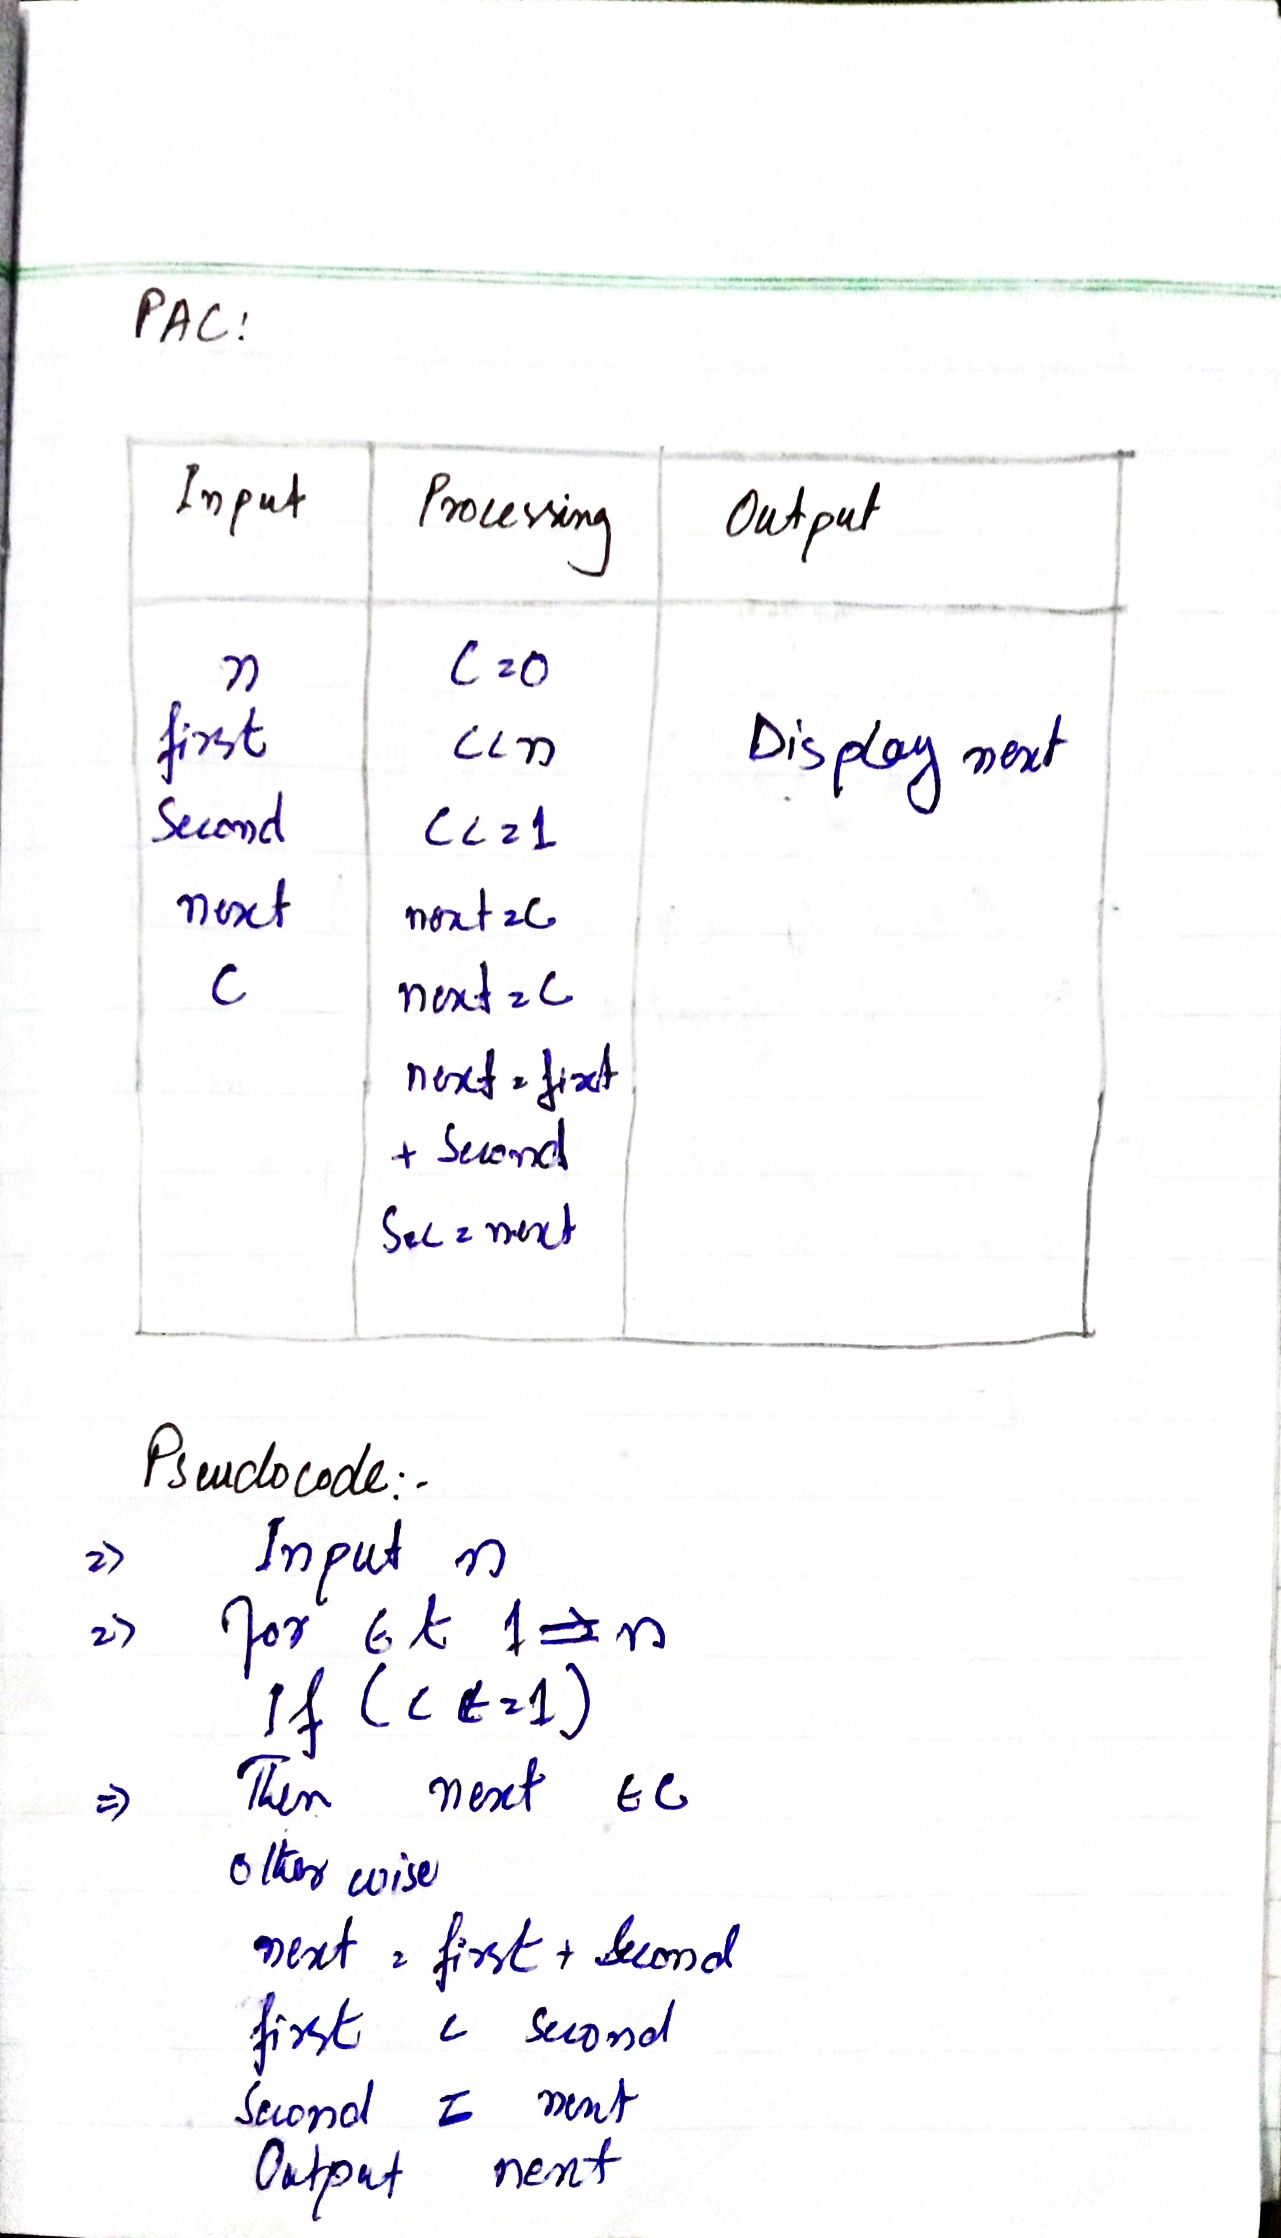 PAC:
Input Processing Output
n C=0
first C<n Display next
Second C<=1
next next=C
C next=C
next=first
+ Second
Sec=next
Pseudocode:-
=> Input n
=> for 1 => n
If (C <=1)
=> Then next ← C
Otherwise
next = first + Second
first < second
Second = next
Output next